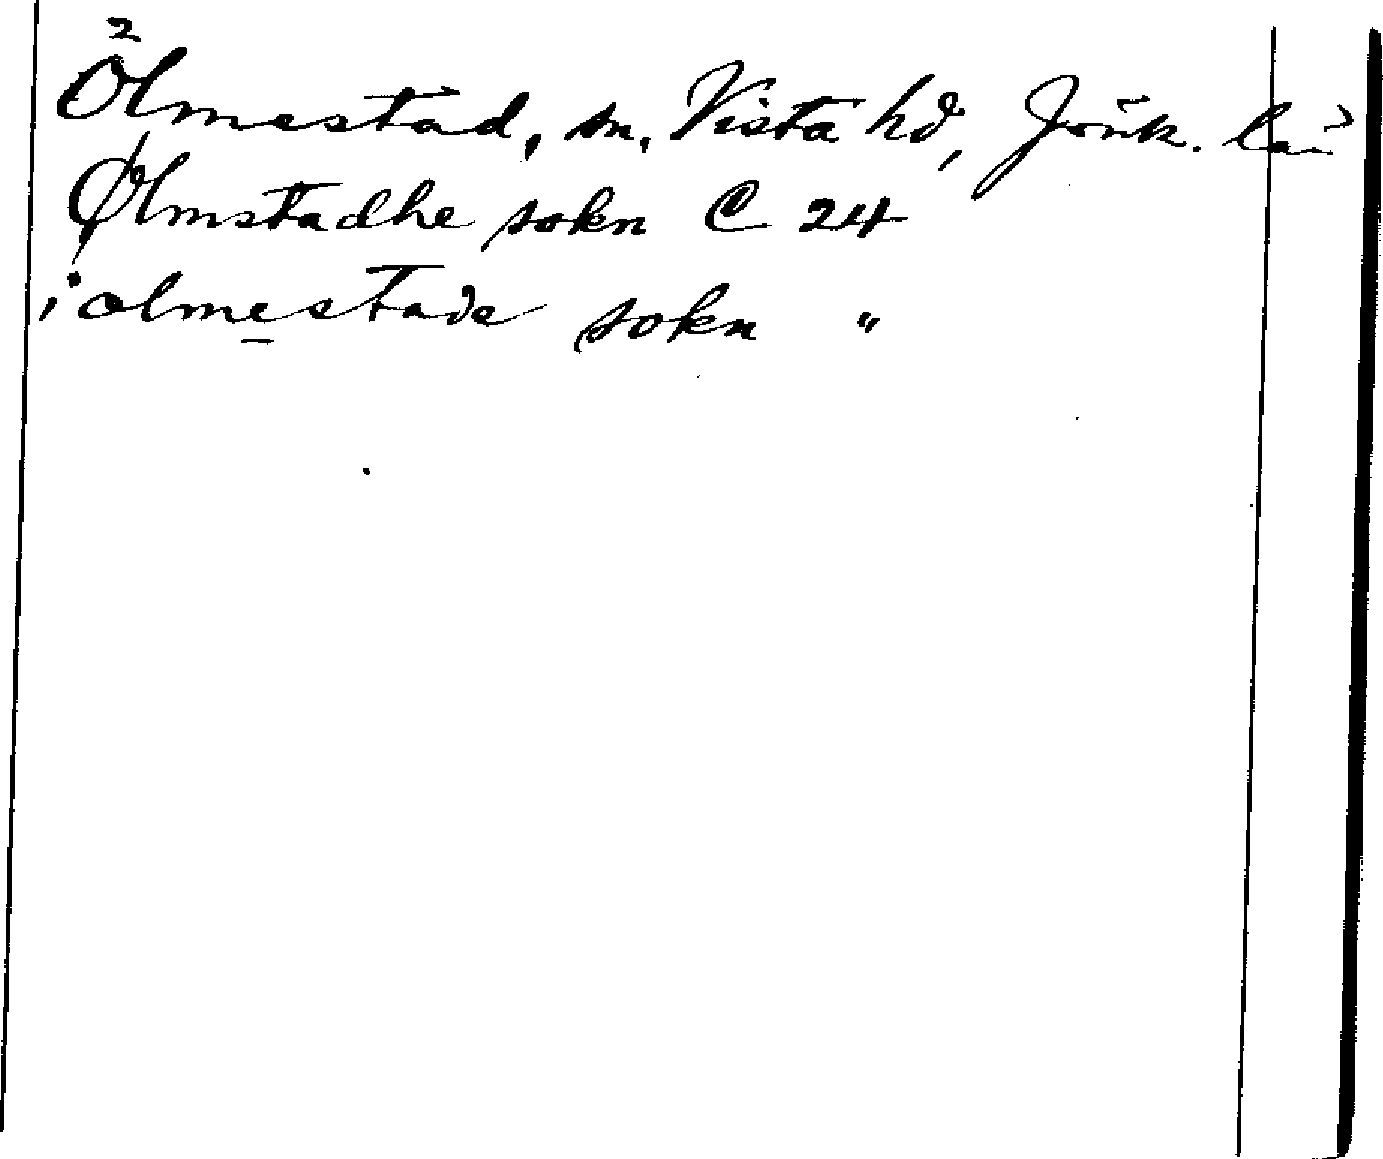 Ölmestad, sn, Vista hd, Jönk. län
Ølmstadhe sokn C 24
i olmestade sokn "